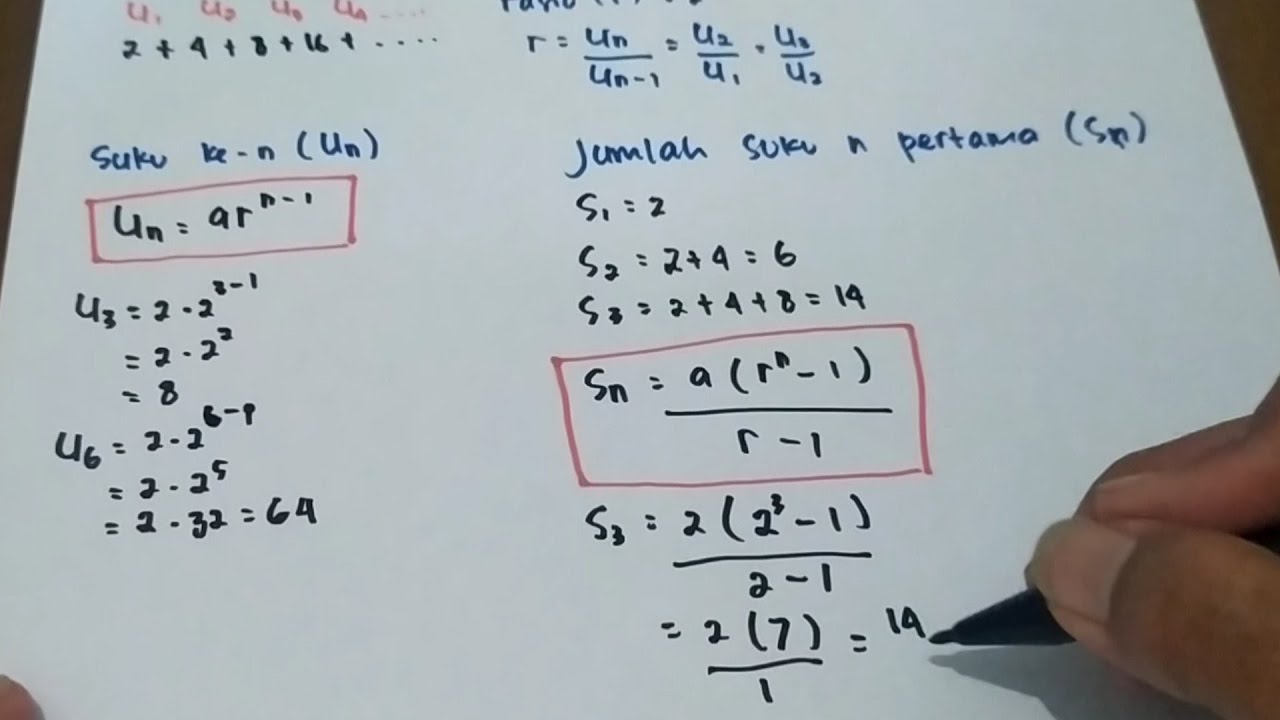 U₁ U₂ U₃ U₄ ....
2 + 4 + 8 + 16 + ....
r = Un/Un-1 = U₂/U₁ = U₃/U₂
Suku ke-n (Un)
Un = ar^n-1
U₃ = 2 . 2^3-1
= 2 . 2²
= 8
U₆ = 2 . 2^6-1
= 2 . 2⁵
= 2 . 32 = 64
Jumlah suku n pertama (Sn)
S₁ = 2
S₂ = 2+4 = 6
S₃ = 2+4+8 = 14
Sn = a(r^n - 1)
r - 1
S₃ = 2(2³ - 1)
2 - 1
= 2(7) = 14
1